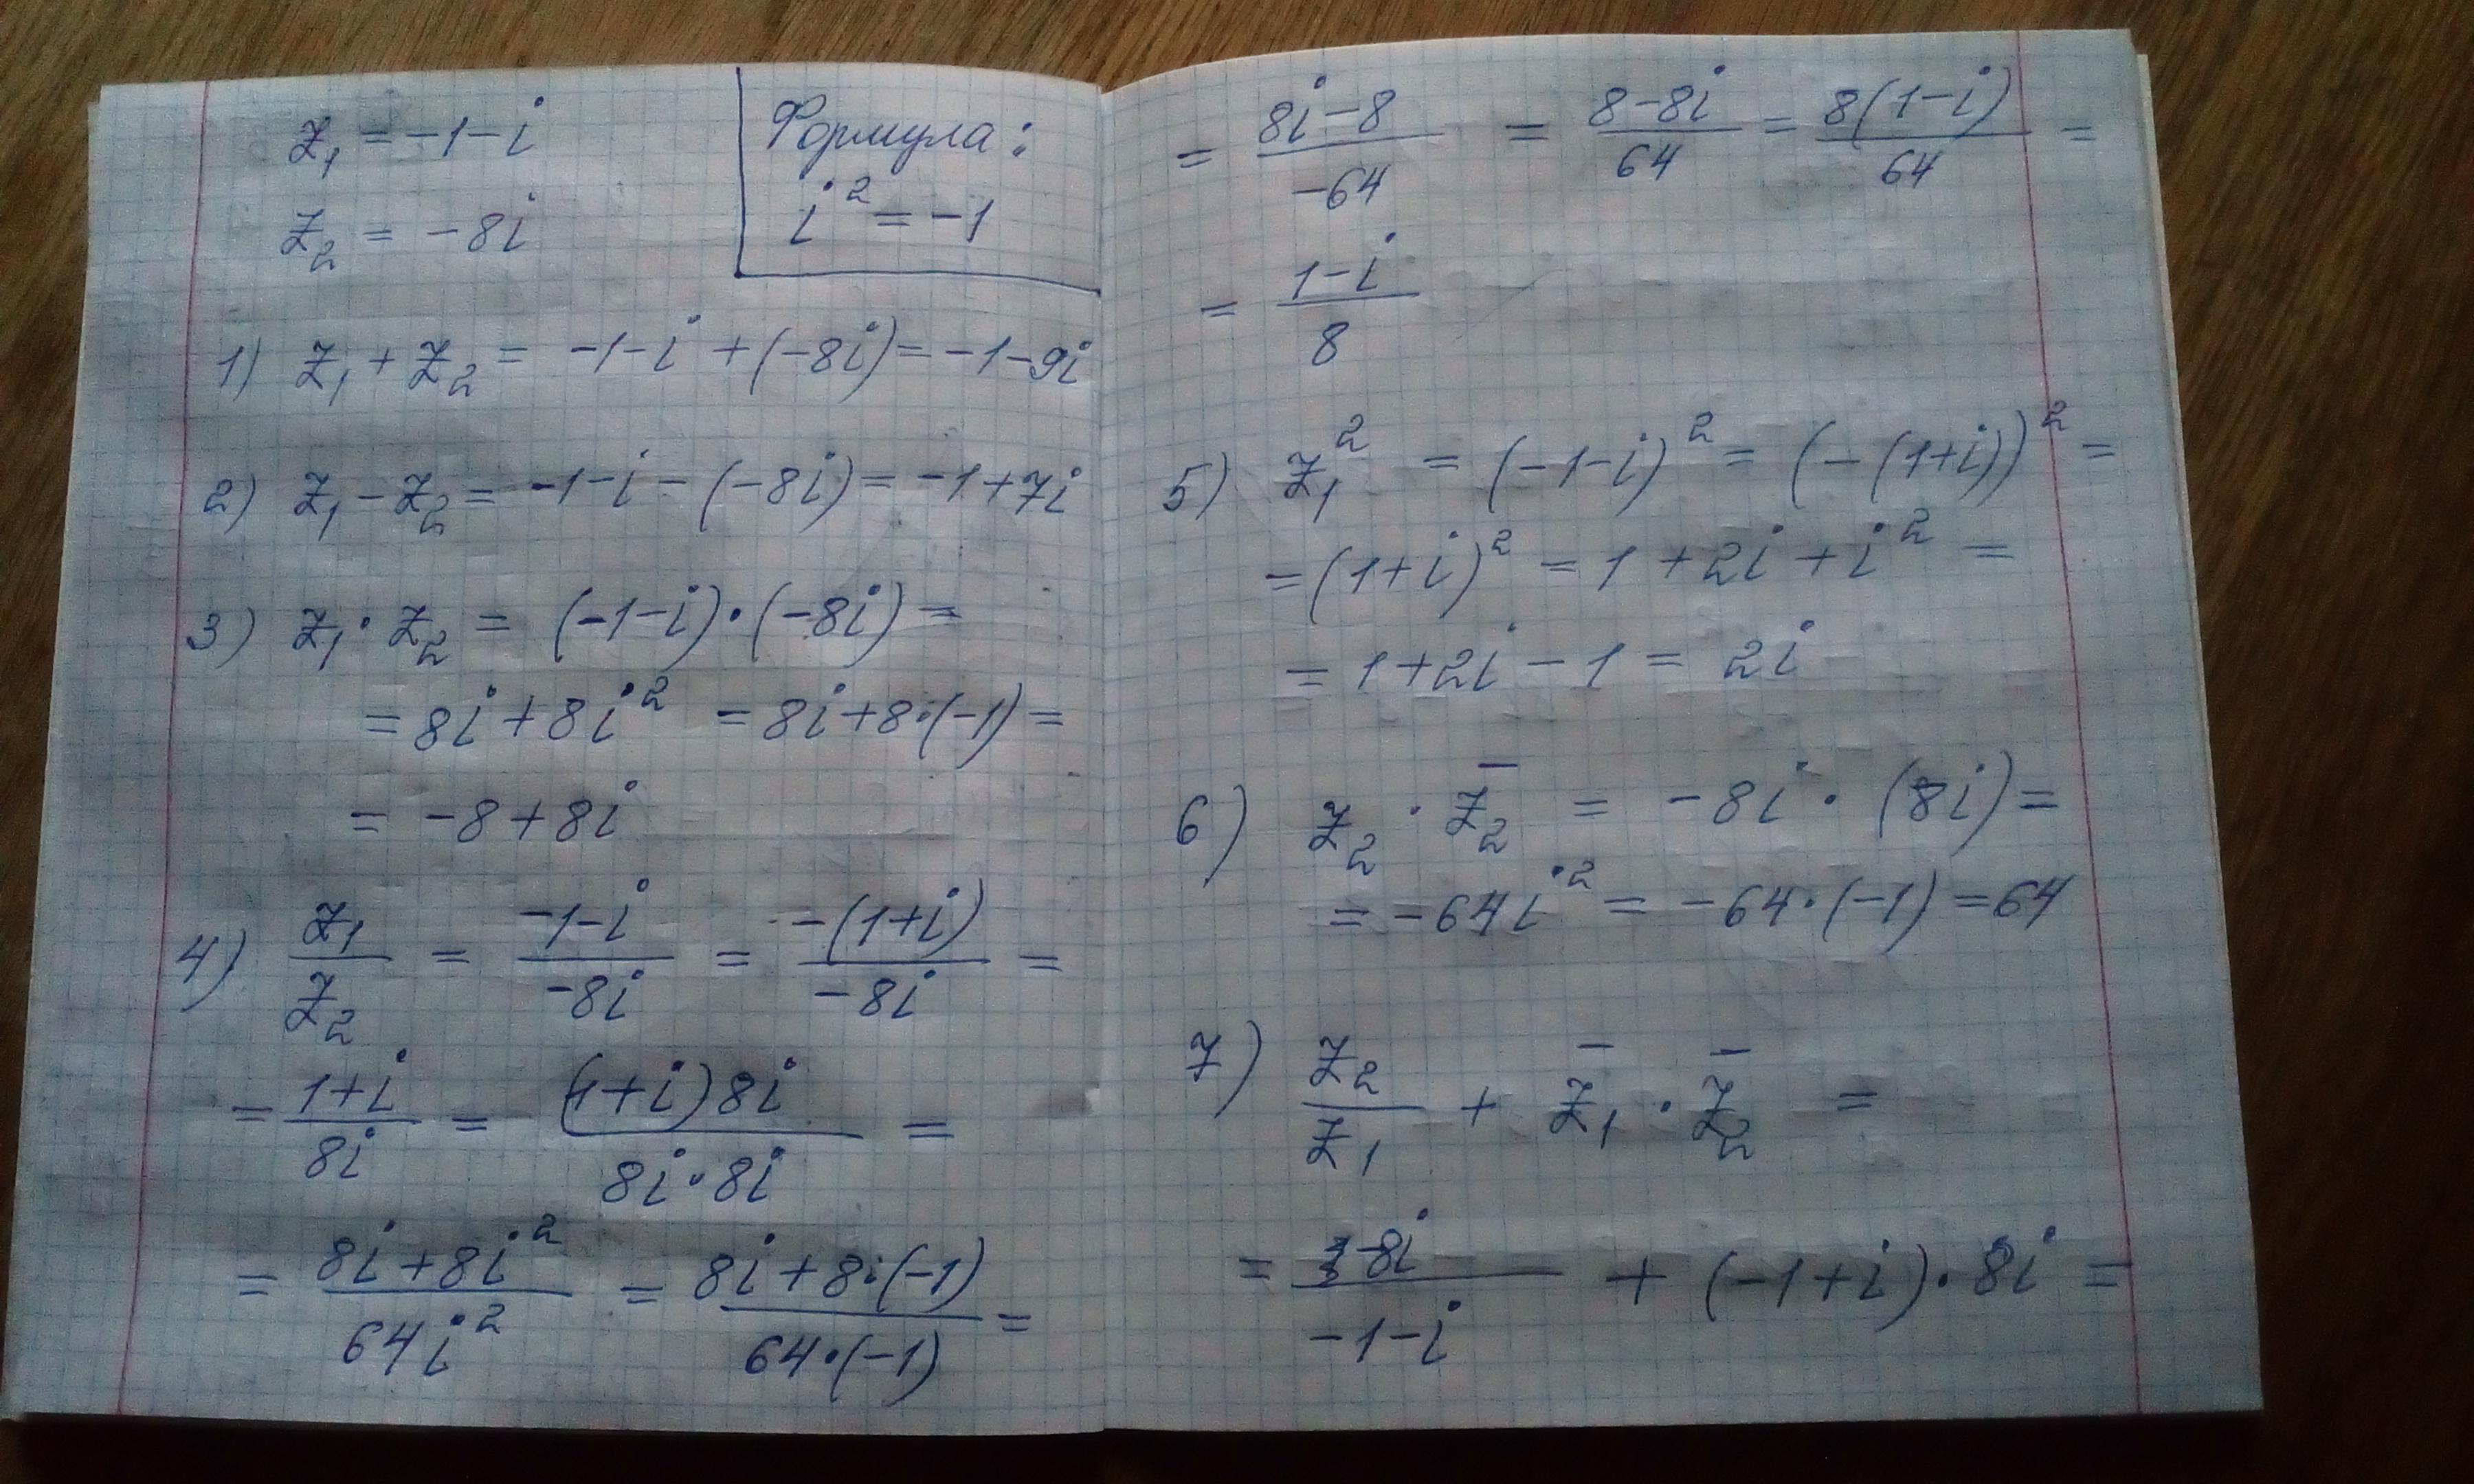 z₁ = -1-i
z₂ = -8i
Формула:
i² = -1
1) z₁ + z₂ = -1-i + (-8i) = -1-9i
2) z₁ - z₂ = -1-i - (-8i) = -1+7i
3) z₁ · z₂ = (-1-i)·(-8i) =
= 8i + 8i² = 8i + 8·(-1) =
= -8 + 8i
4) z₁/z₂ = (-1-i)/(-8i) = (-(1+i))/(-8i) =
= (1+i)/(8i) = ((1+i)8i)/(8i·8i) =
= (8i+8i²)/(64i²) = (8i+8·(-1))/(64·(-1)) =
= (8i-8)/(-64) = (8-8i)/64 = (8(1-i))/64 =
= (1-i)/8
5) z₁² = (-1-i)² = (-(1+i))² =
= (1+i)² = 1 + 2i + i² =
= 1 + 2i - 1 = 2i
6) z₂ · z̄₂ = -8i · (8i) =
= -64i² = -64·(-1) = 64
7) z₂/z₁ + z̄₁ · z̄₂ =
= (-8i)/(-1-i) + (-1+i)·8i =